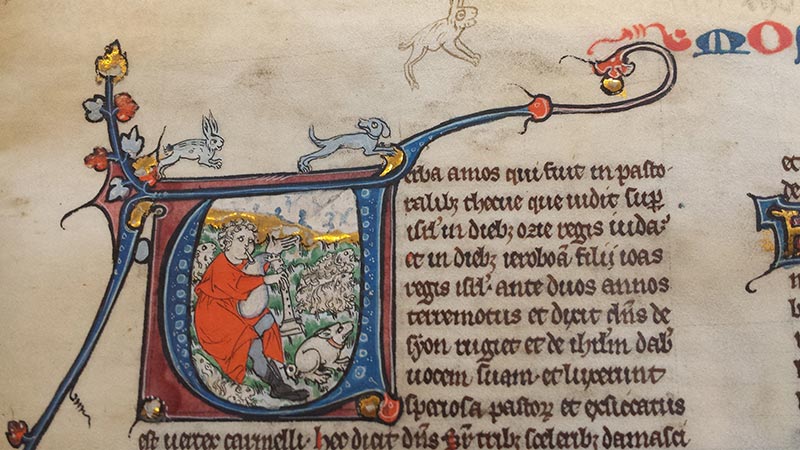 AMOS
Verba amos qui fuit in pasto-
ralibꝫ thecue que uidit suꝑ
isrl̓ in diebꝫ ozie regis iuda
et in diebꝫ ieroboā filij ioas
regis isrl̓· ante duos annos
terremotus et dixit dn̄s de
syon rugiet et de ihrl̓m dab̓
uocem suam· et luxerunt
speciosa pastoꝝ et exsiccatus
est uertex carmelli· hec dicit dn̄s sr̄ tribꝫ sceleribꝫ damasci
et
de